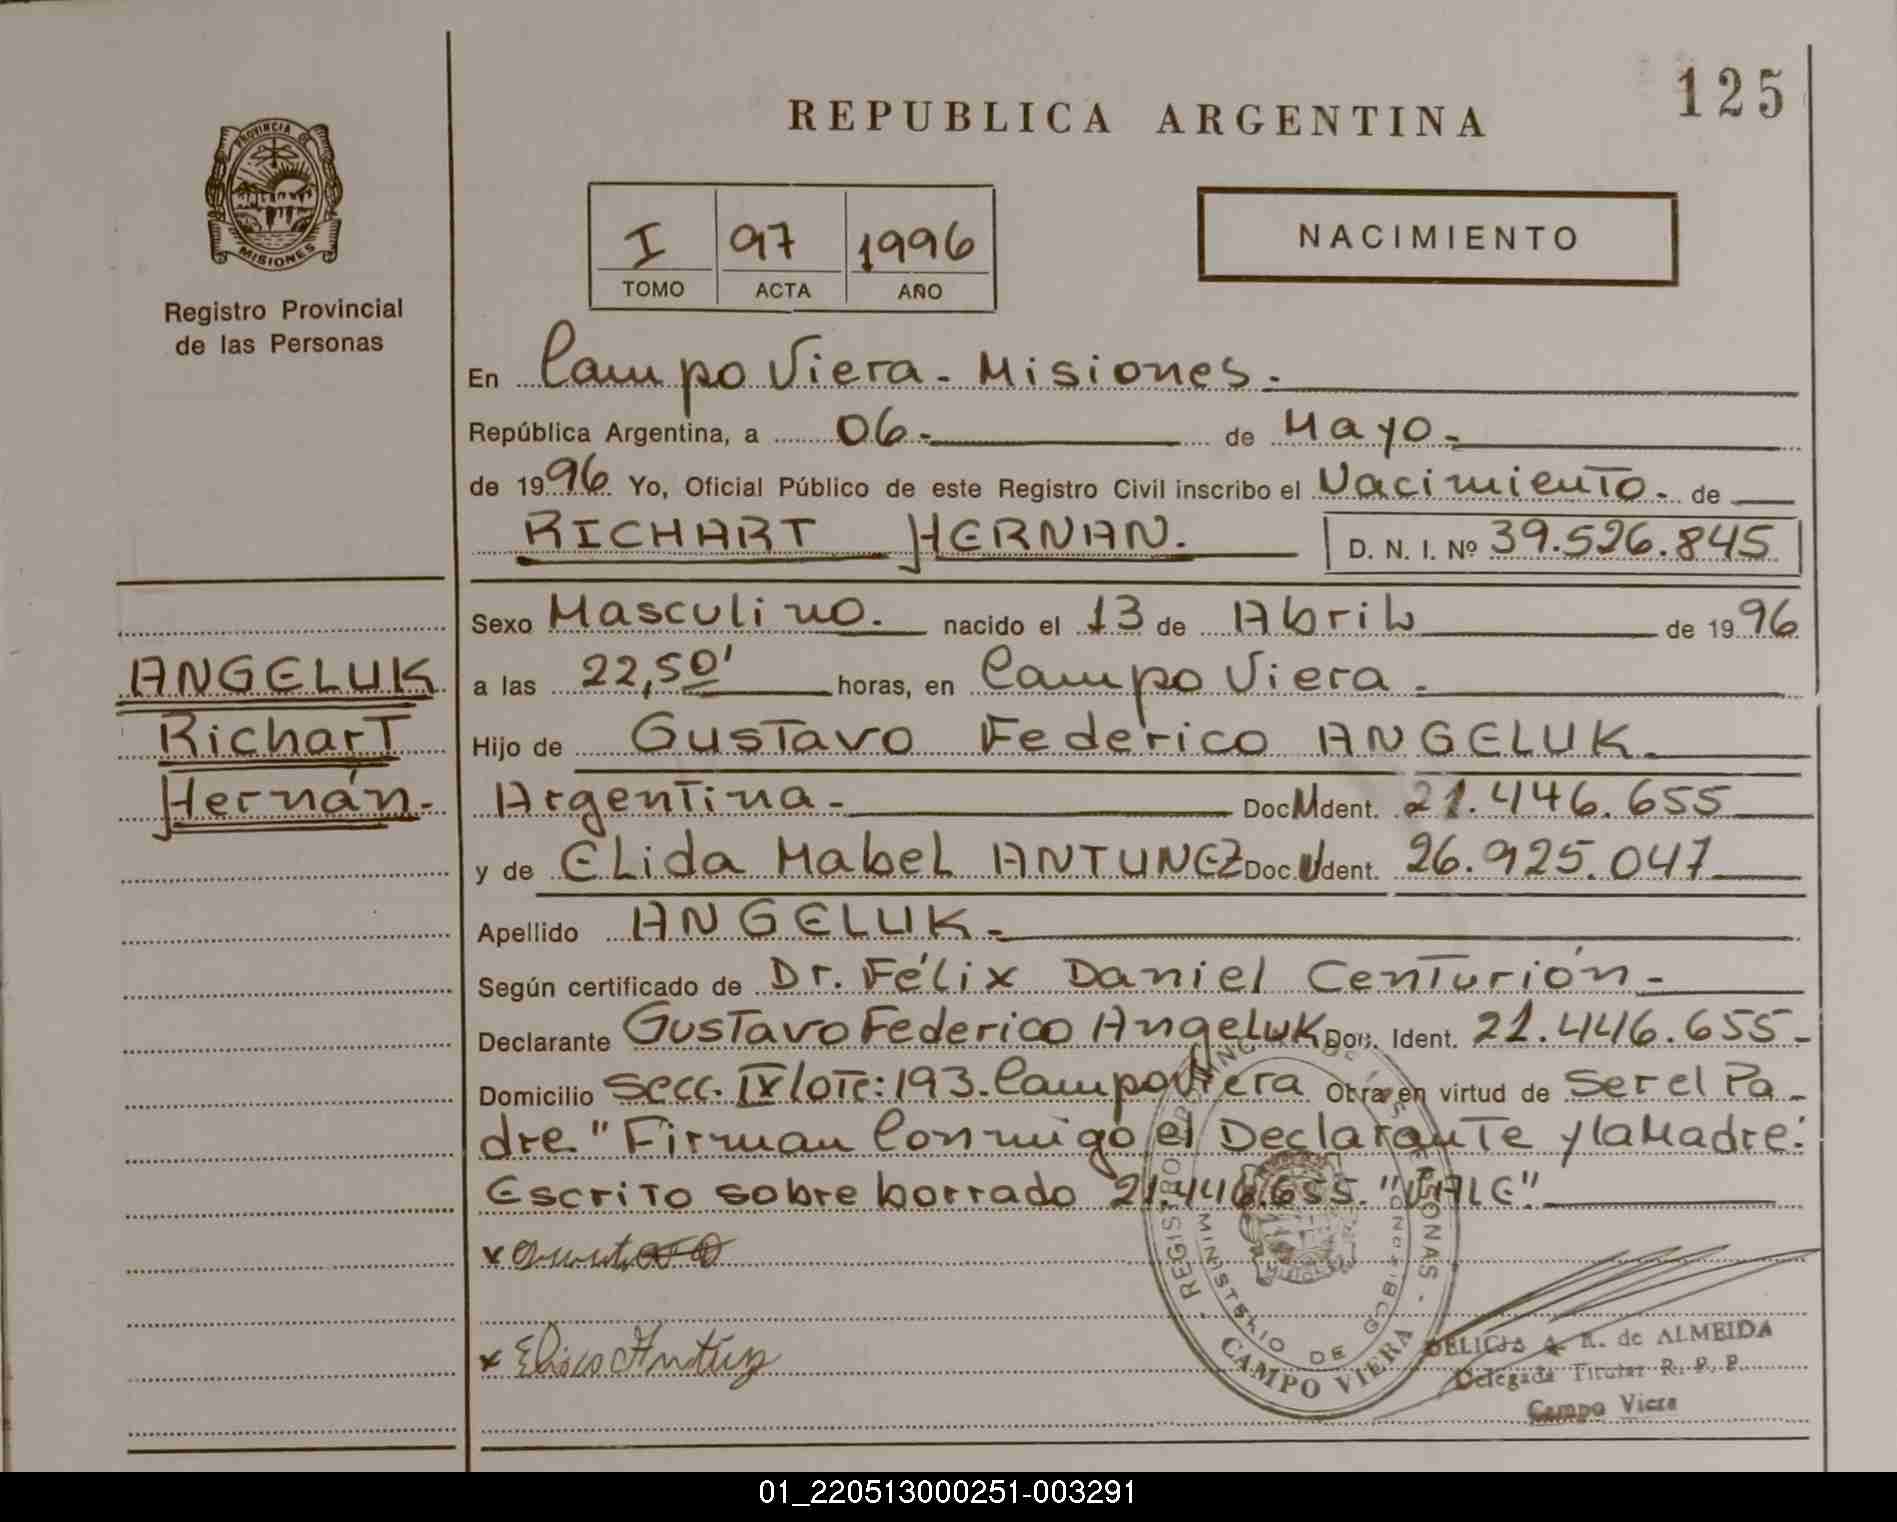 125
REPUBLICA ARGENTINA
PROVINCIA DE
MISIONES
Registro Provincial
de las Personas
I 97 1996
TOMO ACTA AÑO
NACIMIENTO
En Campo Viera - Misiones.
República Argentina, a 06 - de Mayo -
de 1996 Yo, Oficial Público de este Registro Civil inscribo el Nacimiento. de
RICHART HERNAN. D. N. I. Nº 39.526.845
Sexo Masculino. nacido el 13 de Abril de 1996
ANGELUK
a las 22,50' horas, en Campo Viera.
Richart
Hijo de Gustavo Federico ANGELUK
Hernán.-
Argentina - Doc. Ident. 21.446.655
y de Elida Mabel ANTUNEZ Doc. Ident. 26.925.047
Apellido ANGELUK -
Según certificado de Dr. Félix Daniel Centurión -
Declarante Gustavo Federico Angeluk Doc. Ident. 21.446.655-
Domicilio Secc. IX lote: 193. Campo Viera Obra en virtud de Ser el Pa-
dre." Firman Conmigo el Declarante y la Madre:
Escrito sobre borrado 21.446.655. "VALE"
REGISTRO PROVINCIAL DE LAS PERSONAS
MINISTERIO DE GOBIERNO
CAMPO VIERA
x
x Elida Antúnez
DELICIA A. R. de ALMEIDA
Delegada Titular R. P. P.
Campo Viera
01_220513000251-003291